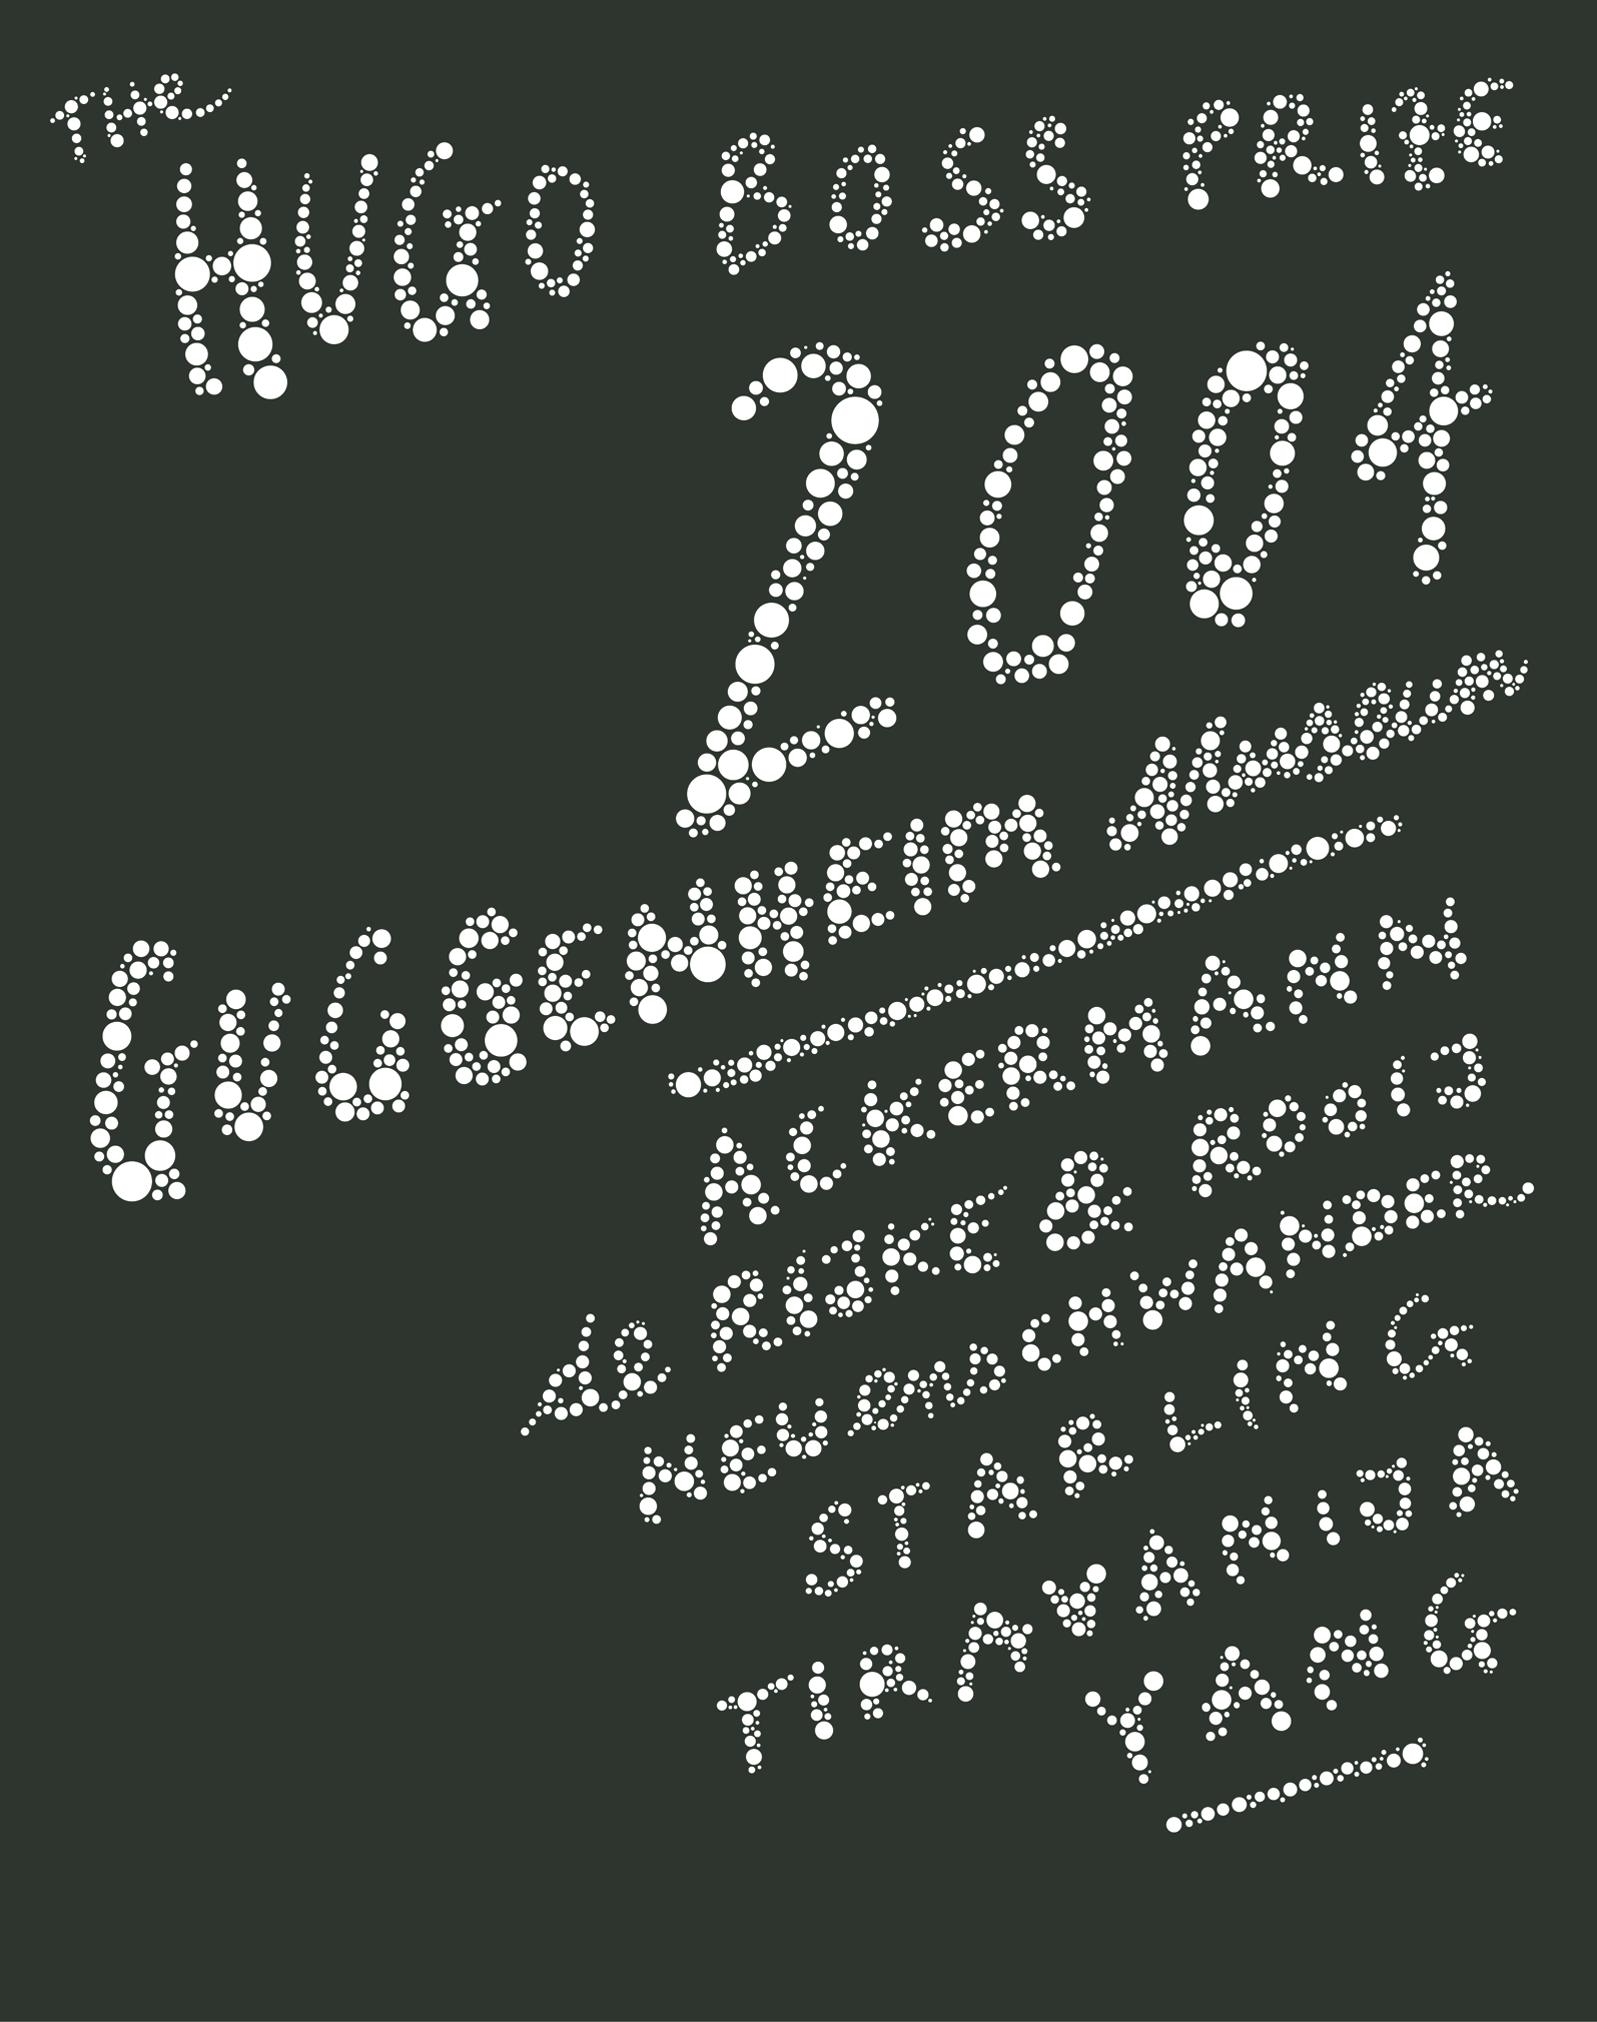 THE
HUGO BOSS PRIZE
2004
GUGGENHEIM MUSEUM
ACKERMANN
de RIJKE & ROOIJ
NEUENSCHWANDER
STARLING
TIRAVANIJA
YANG